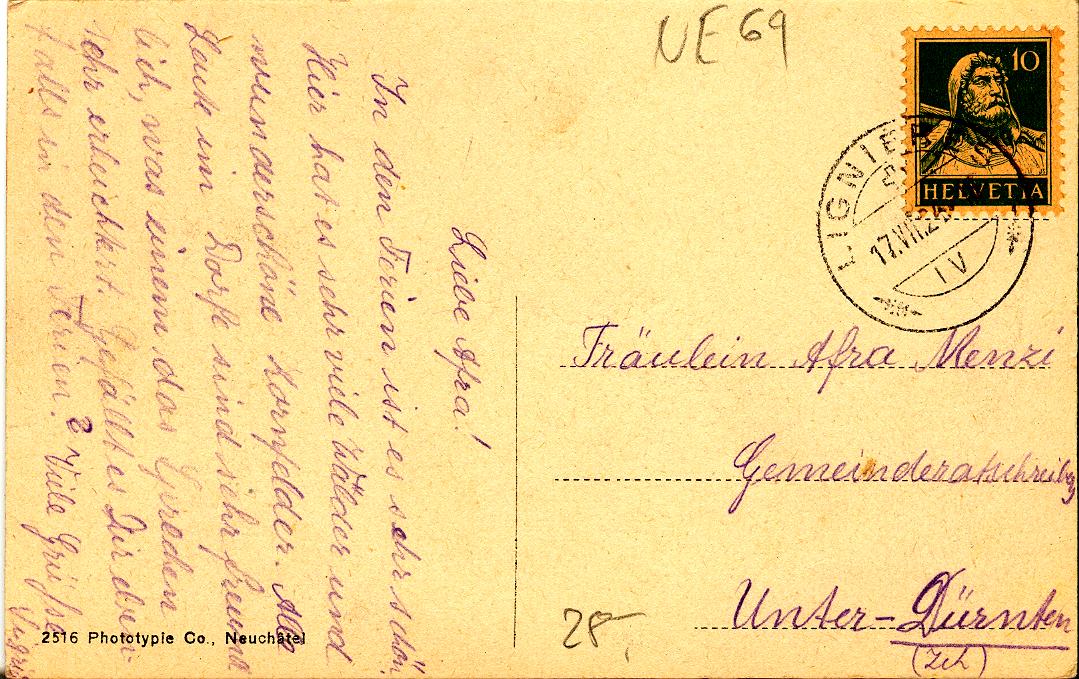 NE 69
10
HELVETIA
LIGNIÈR
17.VII.2
IV
Liebe Afra!
In den Ferien ist es sehr schön.
Hier hat es sehr viele Wälder und
wunderschöne Kornfelder. Alle
Leute im Dorfe sind sehr freund
lich, was einem das Spreden
sehr erleichtert. Gefällt es Dir eben-
falls in den Ferien? Viele Grüsse
Fräulein Afra Menzi
Gemeinderatschreiberg
Unter-Dürnten
(Zch)
28-
2516 Phototypie Co., Neuchâtel